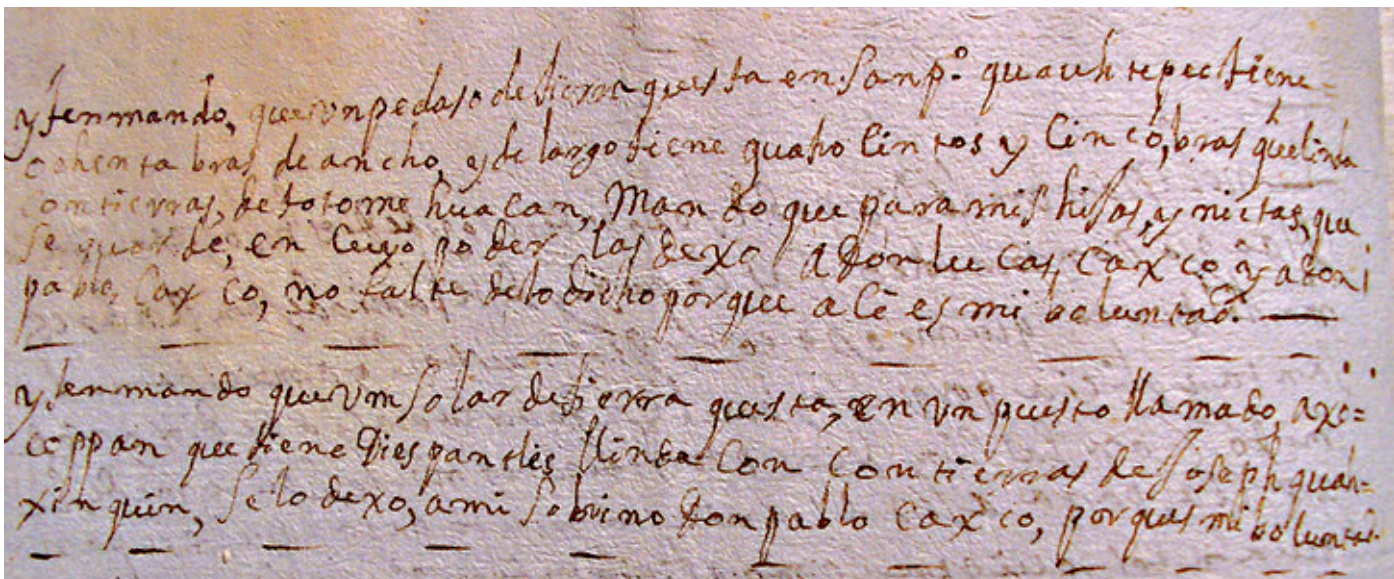 yten mando, que un pedaso de tierra questa en San pº. quauhtepec tiene=
ochenta bras de ancho, y de largo tiene quatro sintos y cinco, bras que linda
con tierras, de totomehuacan, Mando que para mis hijas, y nietas, que
se guarde, en cuyo poder las dexo a don lucas, caxco y a don
pablo, Caxco, no falte de lo dicho porque a ci es mi boluntad. —
yten mando que un Solar de tierra questa, en un puesto llamado, axo=
coppan que tiene dies pantles linda con con tierras de Joseph quau=
xinquin, se lo dexo, a mi sobrino don pablo caxco, porques mi boluntad